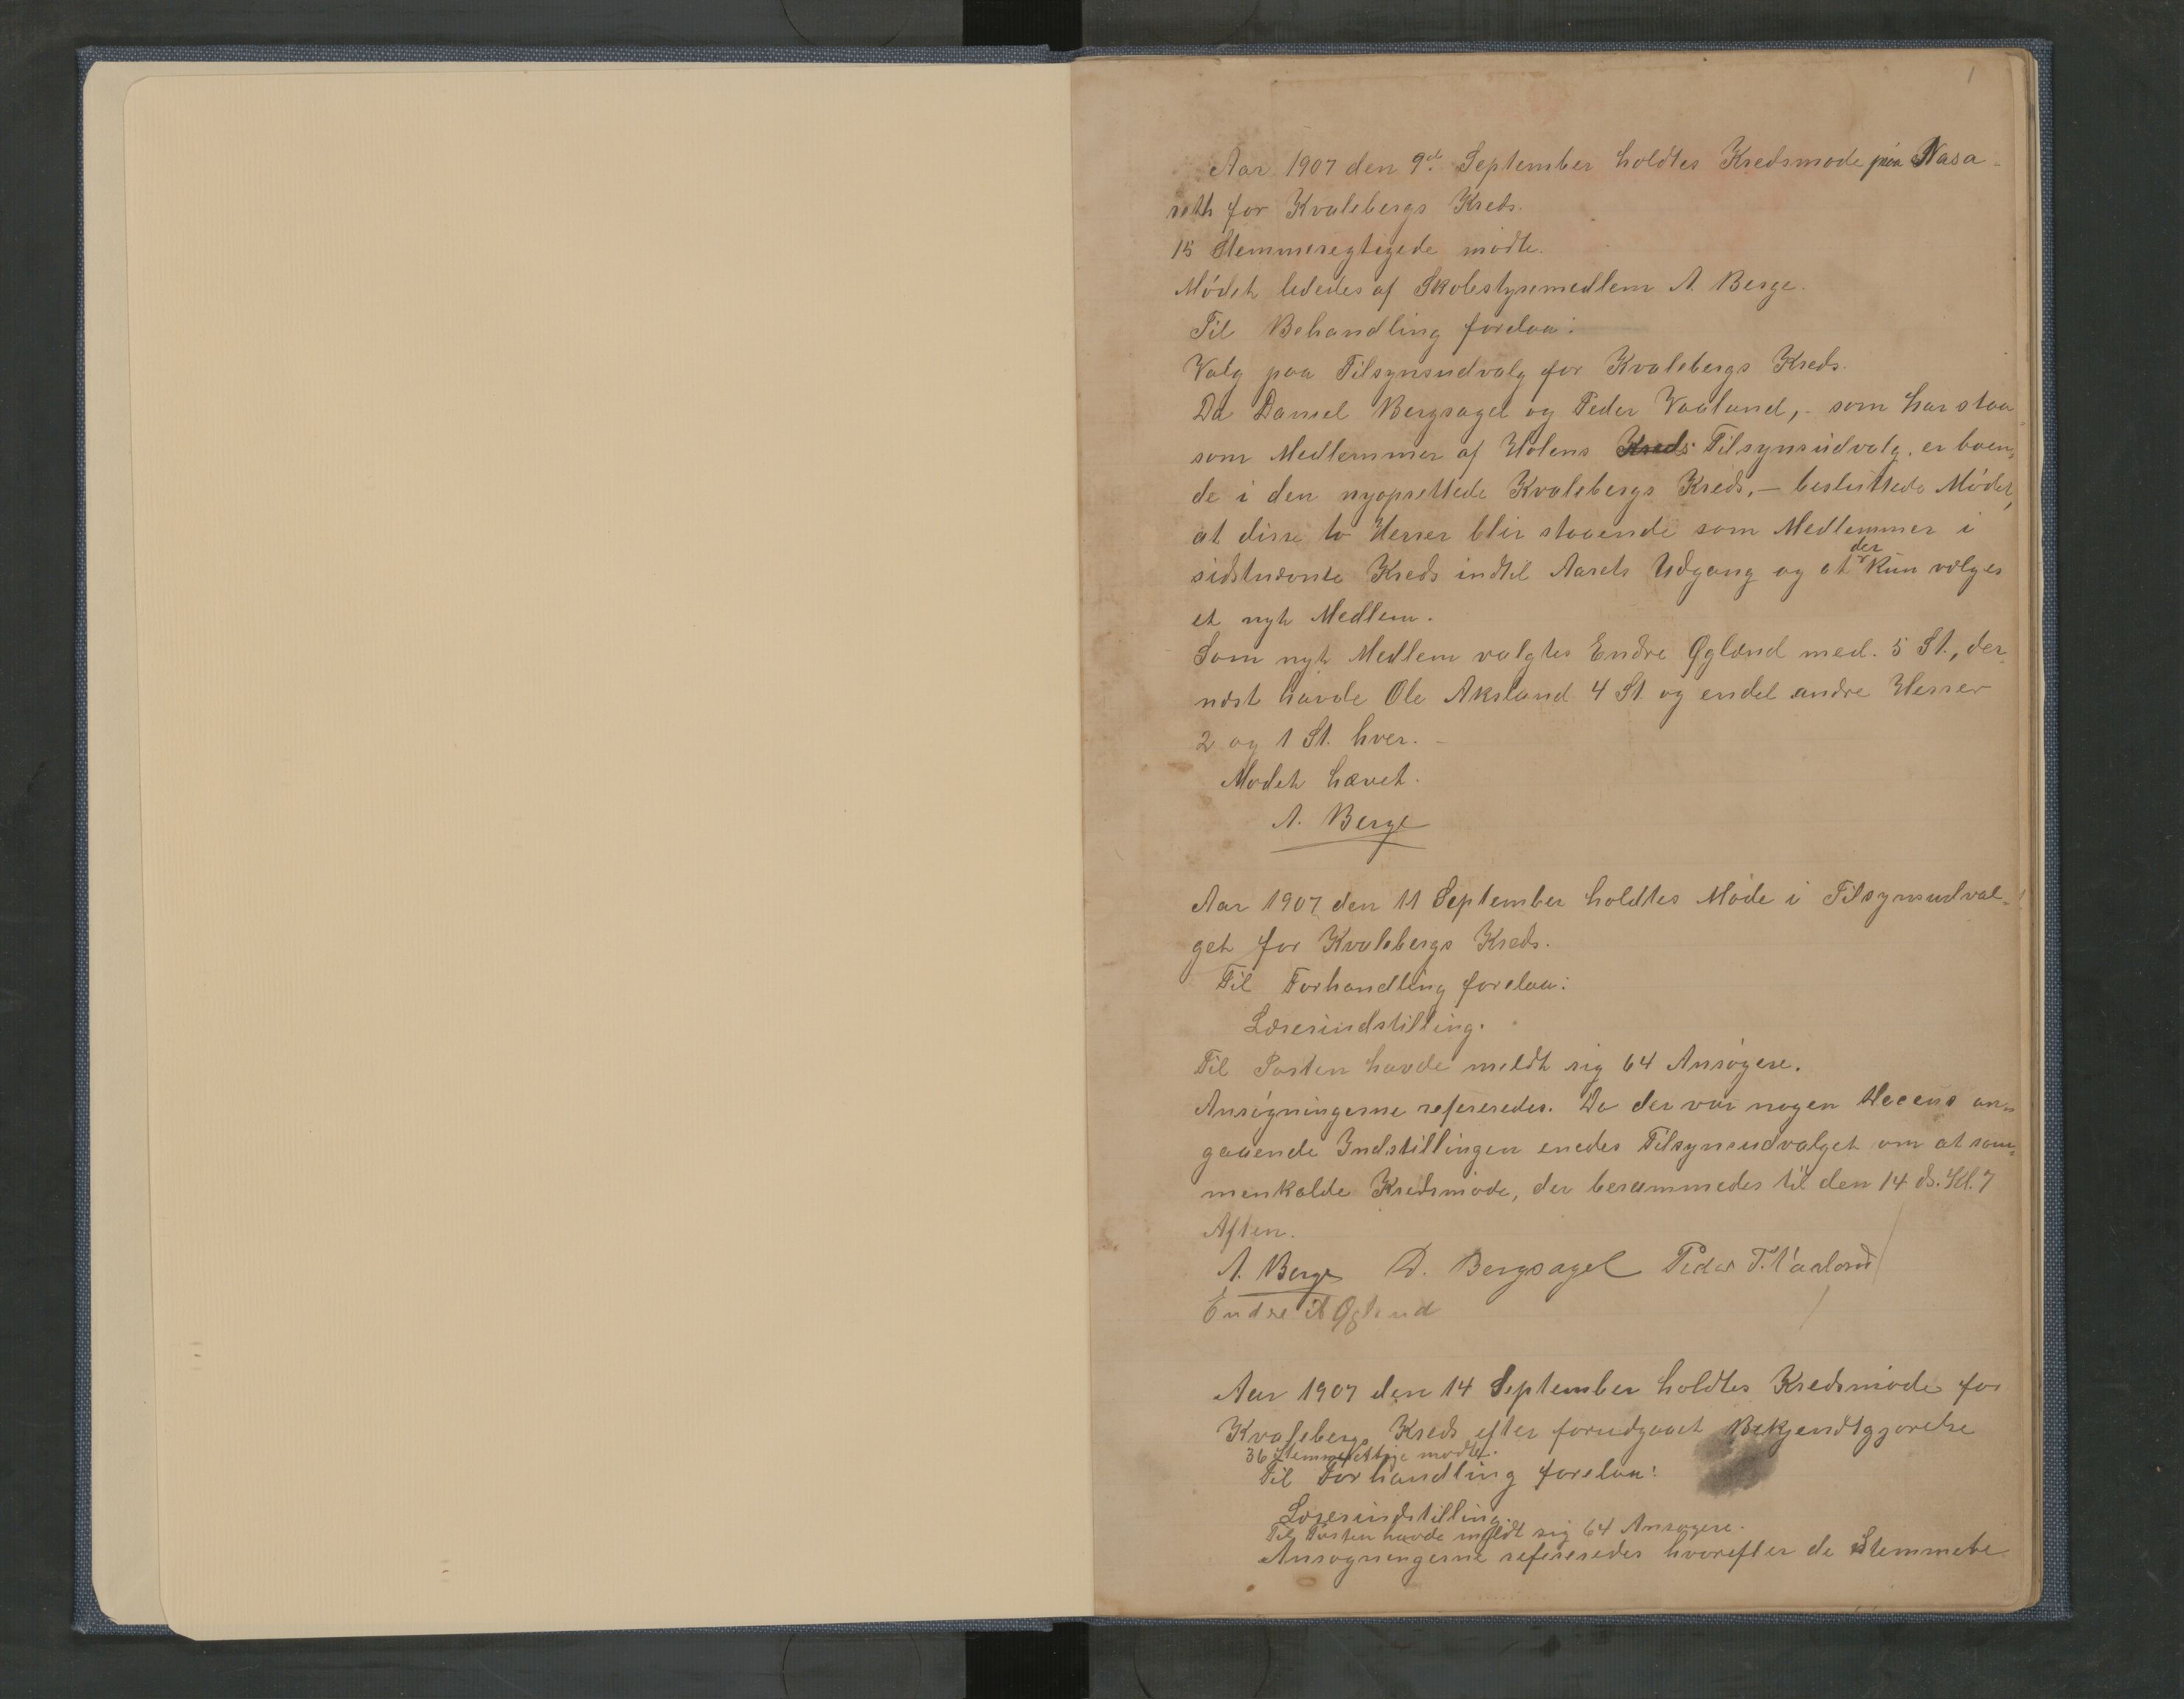 1
Aar 1907 den 9de September holdtes Kredsmøde paa Nasa-
reth for Kvalebergs Kreds.
15 Stemmeregtigede mødte.
Mødet lededes af Skolestyremedlem A. Berge.
Til Behandling forelaa:
Valg paa Tilsynsudvalg for Kvalebergs Kreds.
Da Daniel Bergsagel og Peder Vaaland, - som har staa
som Medlemmer af Holens Kreds Tilsynsudvalg. er boen-
de i den nyoprettede Kvalebergs Kreds, - besluttede Mødet,
at disse to Herrer blir staaende som Medlemmer i
sidstnævnte Kreds indtil Aarets Udgang og at der kun vælges
et nyt Medlem.
Som nyt Medlem valgtes Endre Øgland med. 5 St., der-
næst havde Ole Aksland 4 St. og endel andre Herrer
2 og 1 St. hver. -
Mødet hævet.
A. Berge
Aar 1907 den 11 September holdtes Møde i Tilsynsudval-
get for Kvalebergs Kreds.
Til Forhandling forelaa:
Lærerindstilling.
Til Posten havde meldt sig 64 Ansøgere.
Ansøgningerne refereredes. Da der var nogen an-
gaaende Indstillingen enedes Tilsynsudvalget om at sam-
menkalde Kredsmøde, der berammedes til den 14 ds. Kl. 7
Aften.
A. Berge D. Bergsagel Peder T. Vaaland
Endre A Øgland
Aar 1907 den 14 September holdtes Kredsmøde for
Kvalebergs Kreds efter forudgaaet Bekjendtgjørelse
36 Stemmerettige mødte.
Til Forhandling forelaa:
Lærerindstilling.
Til Posten havde meldt sig 64 Ansøgere.
Ansøgningerne refereredes hvorefter de Stemmebe